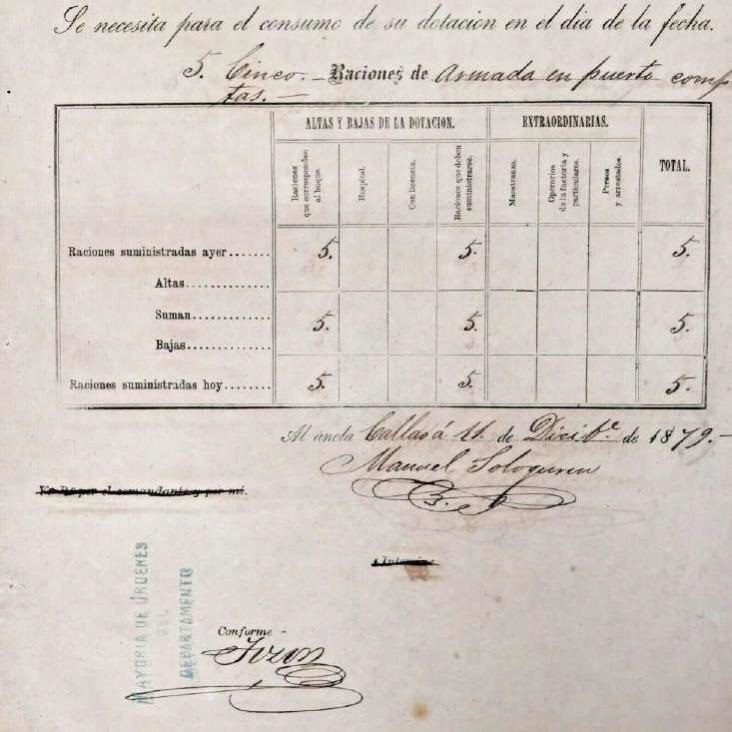 Se necesita para el consumo de su dotacion en el dia de la fecha.
5. Cinco.- Raciones de Armada en puerto comp
tas.-
ALTAS Y BAJAS DE LA DOTACION.
EXTRAORDINARIAS.
TOTAL.
Raciones que corresponden al buque.
Hospital.
Con licencia.
Raciones que deben suministrarse.
Maestranza.
Operarios de la factoria y particulares.
Presos y arrestados.
Raciones suministradas ayer....... 5. 5. 5.
Altas..............
Suman............. 5. 5. 5.
Bajas..............
Raciones suministradas hoy........ 5. 5. 5.
Al ancla Callao á 11. de Dicibe. de 1879.-
Manuel Sologuren
Vo Bo por el comandante y por mí.
MAYORIA DE ORDENES
DEL
DEPARTAMENTO
Conforme -